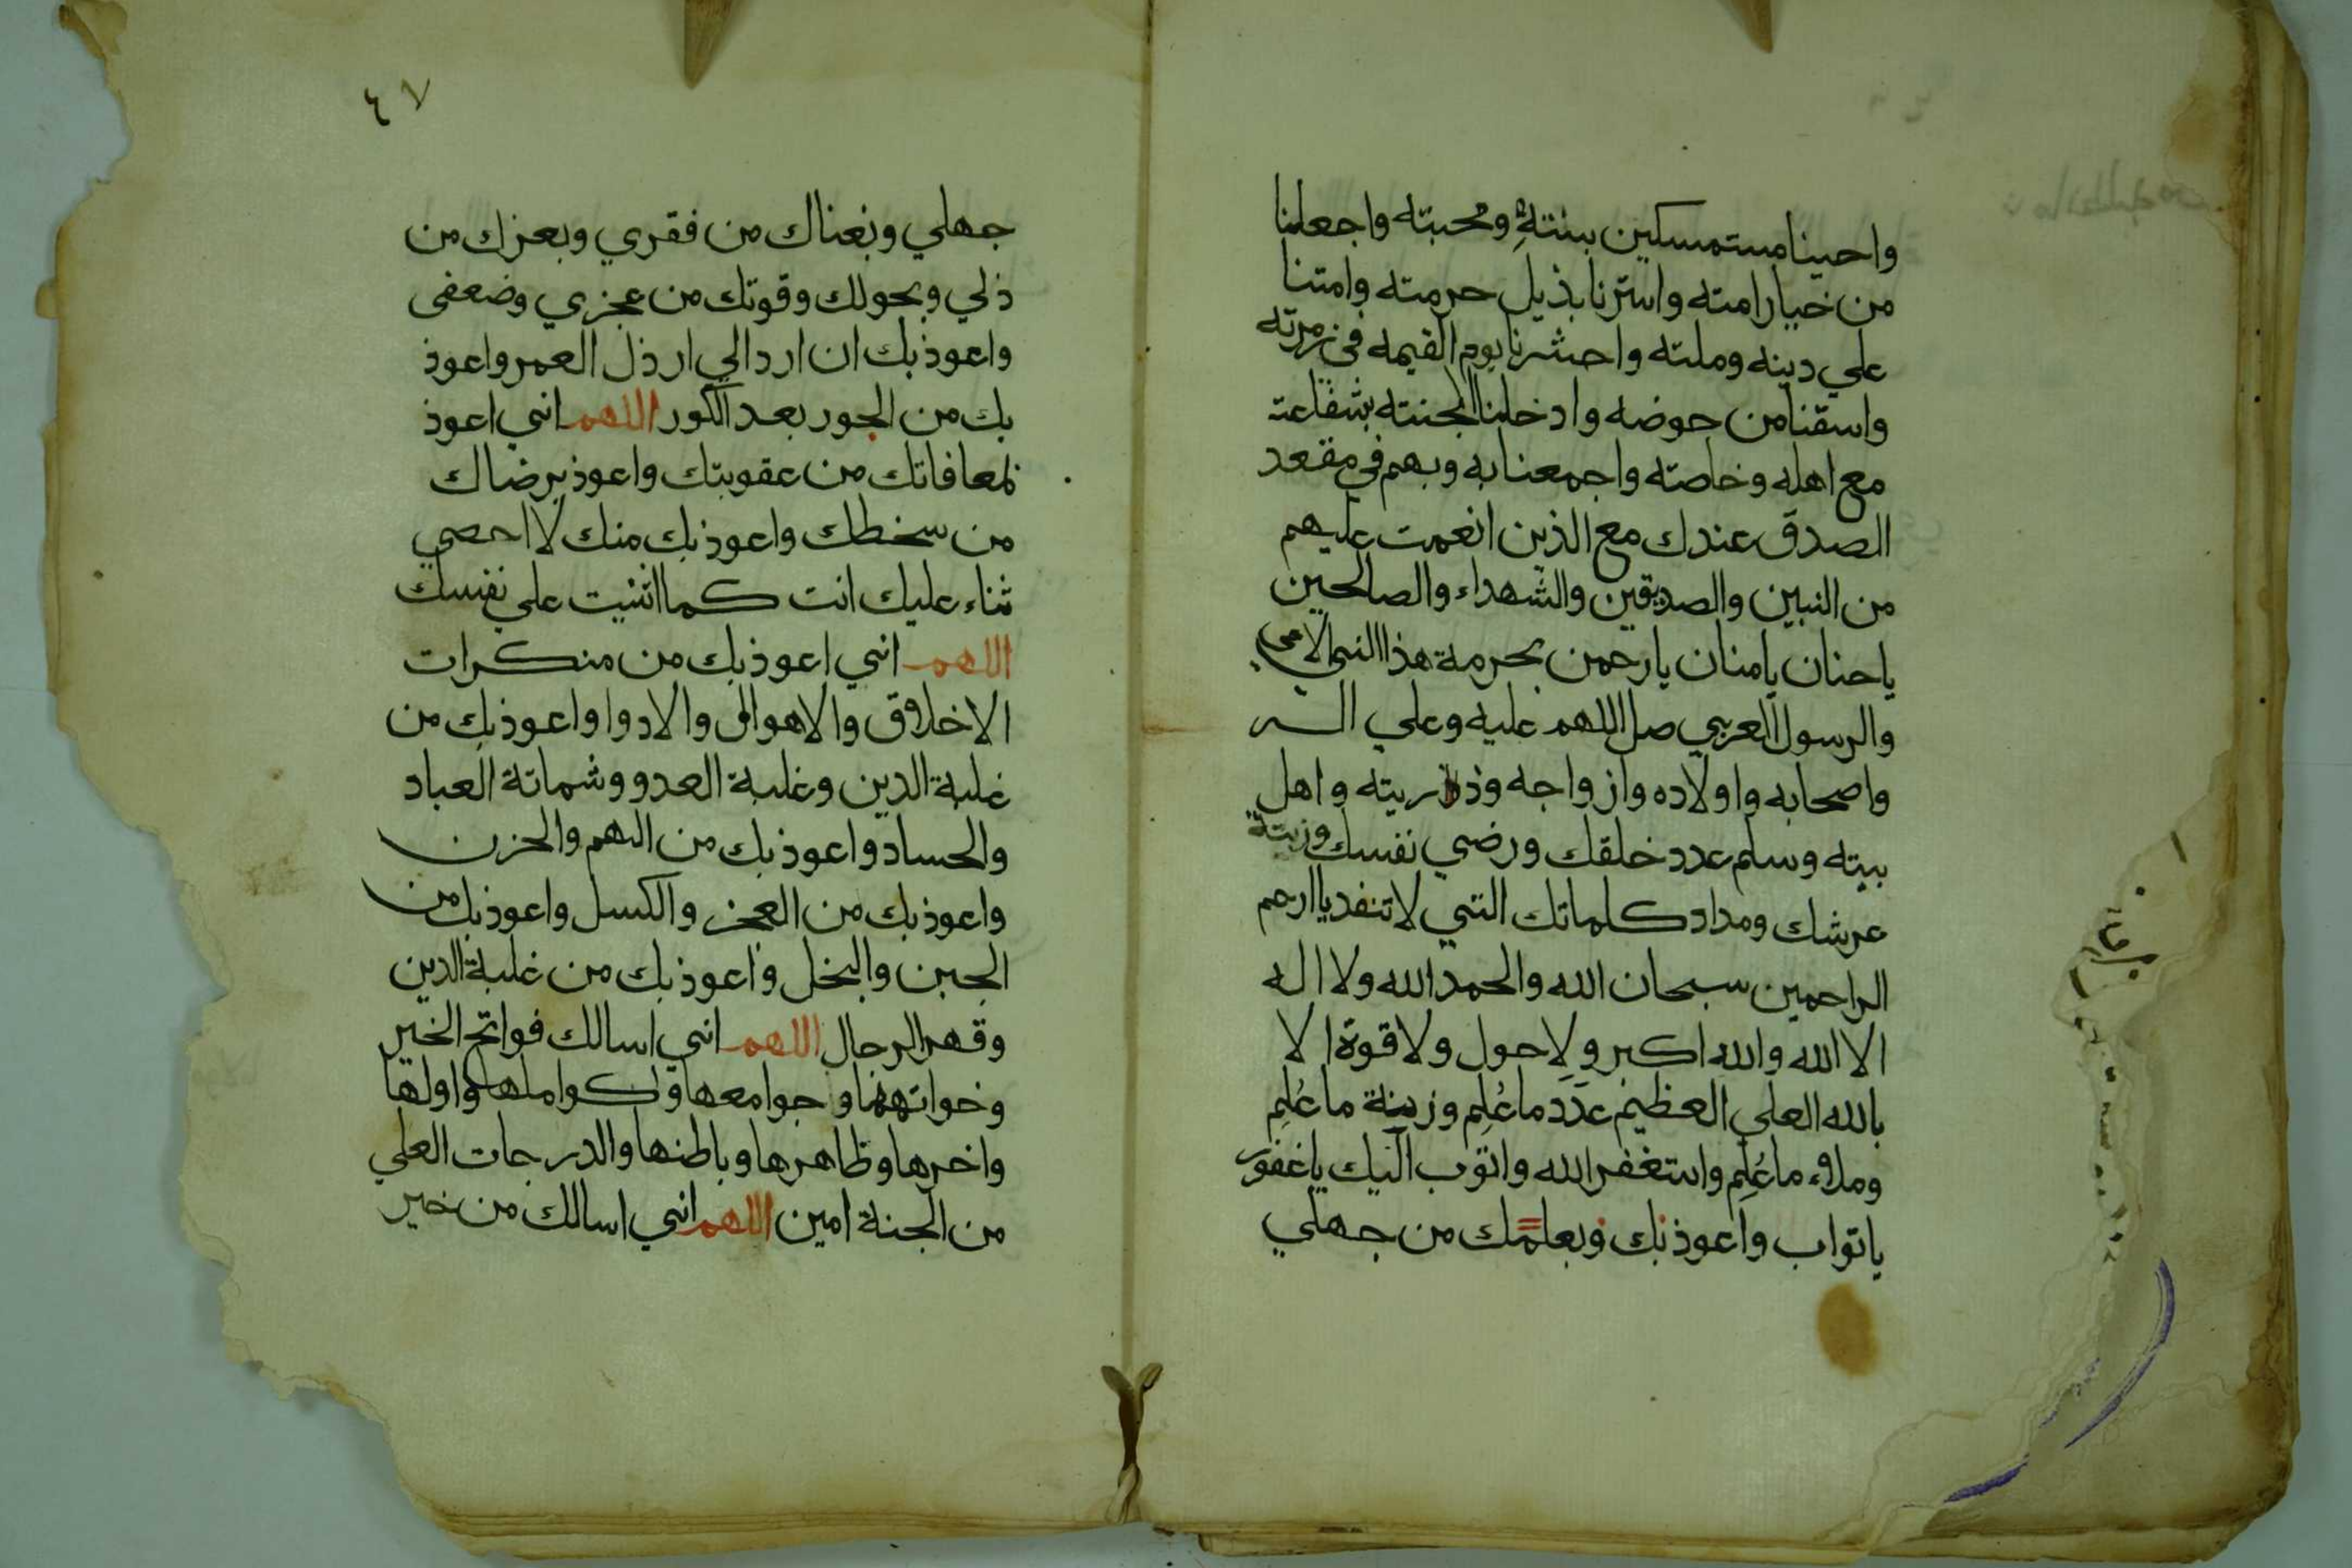 واحينا مستمسكين بسنته ومحبته واجعلنا
من خيار امته واسترنا بذيل حرمته وامتنا
علي دينه وملته واحشرنا يوم القيمه في زمرته
واسقنا من حوضه وادخلنا الجنته بشفاعته
مع اهله وخاصته واجمعنا به وبهم في مقعد
الصدق عندك مع الذين انعمت عليهم
من النبين والصديقين والشهداء والصالحين
ياحنان يامنان يارحمن بحرمة هذا النبي الامي
والرسول العربي صل اللهم عليه وعلي اله
واصحابه واولاده وازواجه وذريته واهل
بيته وسلم عدد خلقك ورضي نفسك وزينة
عرشك ومداد كلماتك التي لا تنفد يا ارحم
الراحمين سبحان الله والحمد الله ولا اله
الا الله والله اكبر ولا حول ولا قوة الا
بالله العلي العظيم عَدَد ما عُلِم وزينة ما عُلِم
وملاء ما عُلِم واستغفر الله واتوب اليك ياغفور
ياتواب واعوذ بك وبعلمك من جهلي
٤٧
جهلي وبغناك من فقري وبعزك من
ذلي وبحولك وقوتك من عجزي وضعفي
واعوذ بك ان ارد الي ارذل العمر واعوذ
بك من الجور بعد الكور اللهم اني اعوذ
بمعافاتك من عقوبتك واعوذ برضاك
من سخطك واعوذ بك منك لا احصي
ثناء عليك انت كما اثنيت علي نفسك
اللهم اني اعوذ بك من منكرات
الاخلاق والاهوال والادوا واعوذ بك من
غلبة الدين وغلبة العدو وشماتة العباد
والحساد واعوذ بك من الهم والحزن
واعوذ بك من العجز والكسل واعوذ بك من
الجبن والبخل واعوذ بك من غلبة الدين
وقهر الرجال اللهم اني اسالك فواتح الخير
وخواتهها وجوامعها وكواملها واولها
واخرها وظاهرها وباطنها والدرجات العلي
من الجنة امين اللهم اني اسالك من خير